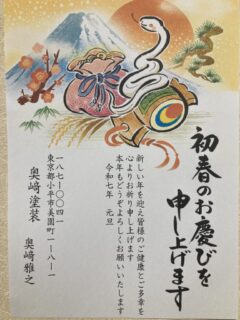 初春のお慶びを
申し上げます
新しい年を迎え皆様のご健康とご多幸を
心よりお祈り申し上げます
本年もどうぞよろしくお願いいたします
令和七年　元旦
一八七-〇〇四一
東京都小平市美園町一-八-一
奥﨑塗装　奥﨑雅之